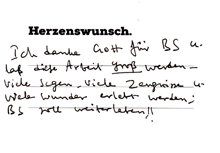 Herzenswunsch.
Ich danke Gott für BS u.
laß diese Arbeit groß werden –
viele Segen, viele Zeugnisse u.
viele Wunder erlebt werden;
BS soll weiterleben!!